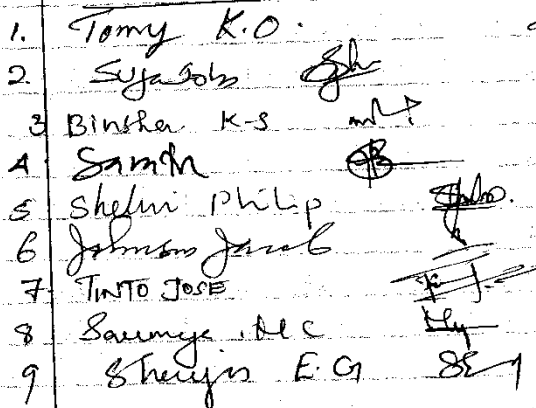 1. Tomy K.O.
2. Suja Jobs
3 Binsha K-S
4 Samin
5 Shelni Philip
6 Johnson Jacob
7. TINTO JOSE
8 Saumya .M C
9 Sherjin E.G